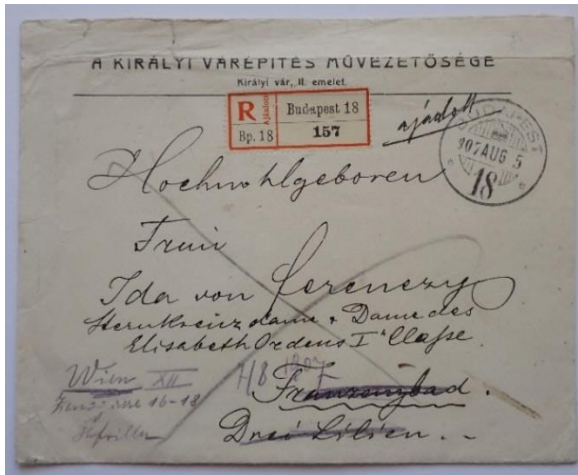 A KIRÁLYI VÁRÉPITÉS MŰVEZETŐSÉGE
Királyi vár, II. emelet.
R Ajánlott Budapest 18
Bp. 18 157
ajánlott
BUDAPEST
907 AUG 5
18
Hochwohlgeboren
Frau
Ida von Ferenczy
Sternkreuzdame + Dame des
Elisabeth Ordens I Classe.
Wien XII
16-18
Franzensbad.
Drei Lilien.